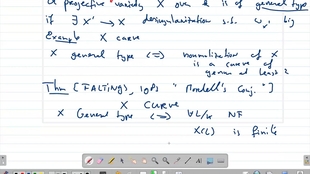 projective variety X over k is of general type
if ∃ X' → X desingularization s.t. ω big
Example X curve
X general type (=) normalization of X
is a curve of
genus at least 2
Thm [FALTINGS, "Mordell's Conj."]
X CURVE
X General type (=) ∀ L/k NF
X(L) is finite